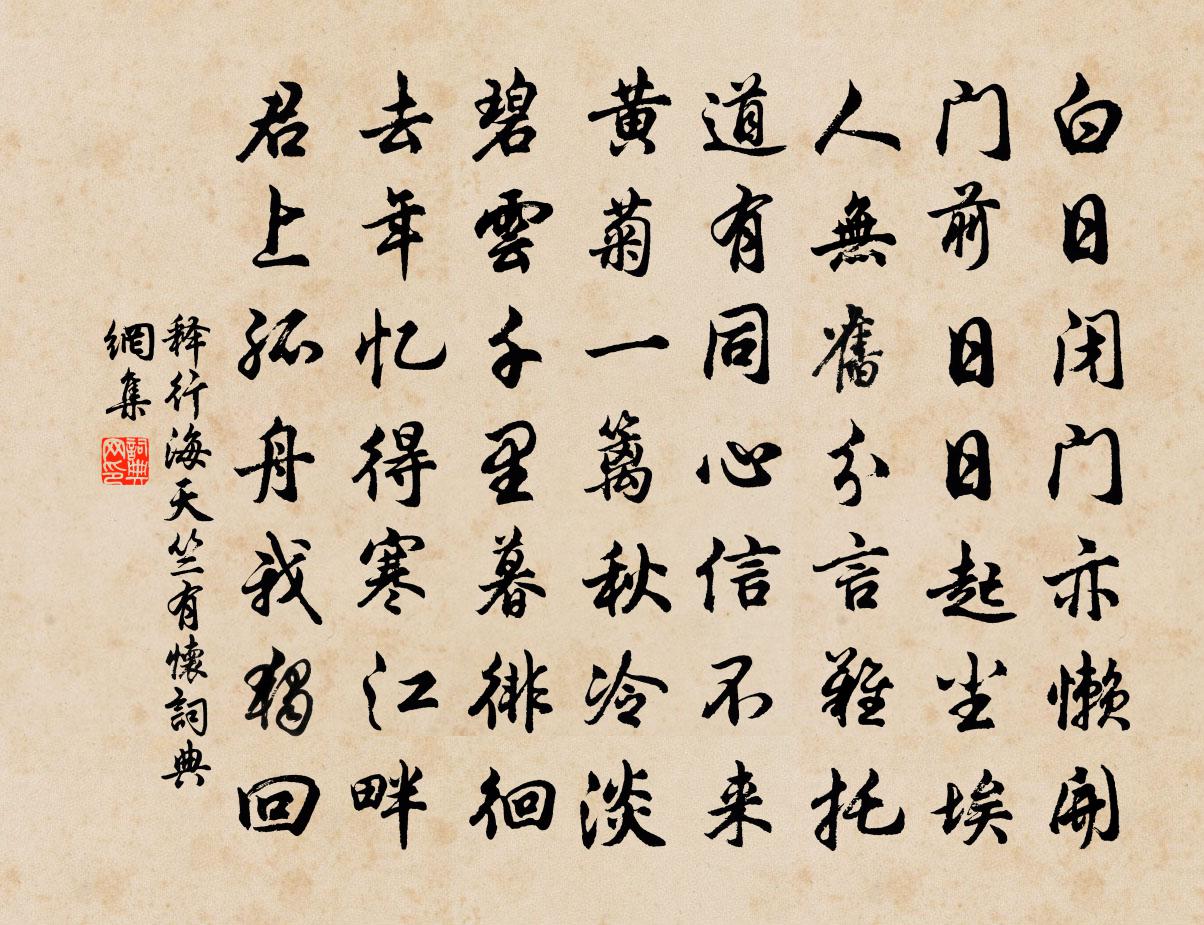 白日闭门亦懒开
门前日日起尘埃
人無舊分言難托
道有同心信不来
黄菊一篱秋冷淡
碧雲千里暮徘徊
去年忆得寒江畔
君上孤舟我独回
释行海天竺有懷詞典
網集
詞典网印